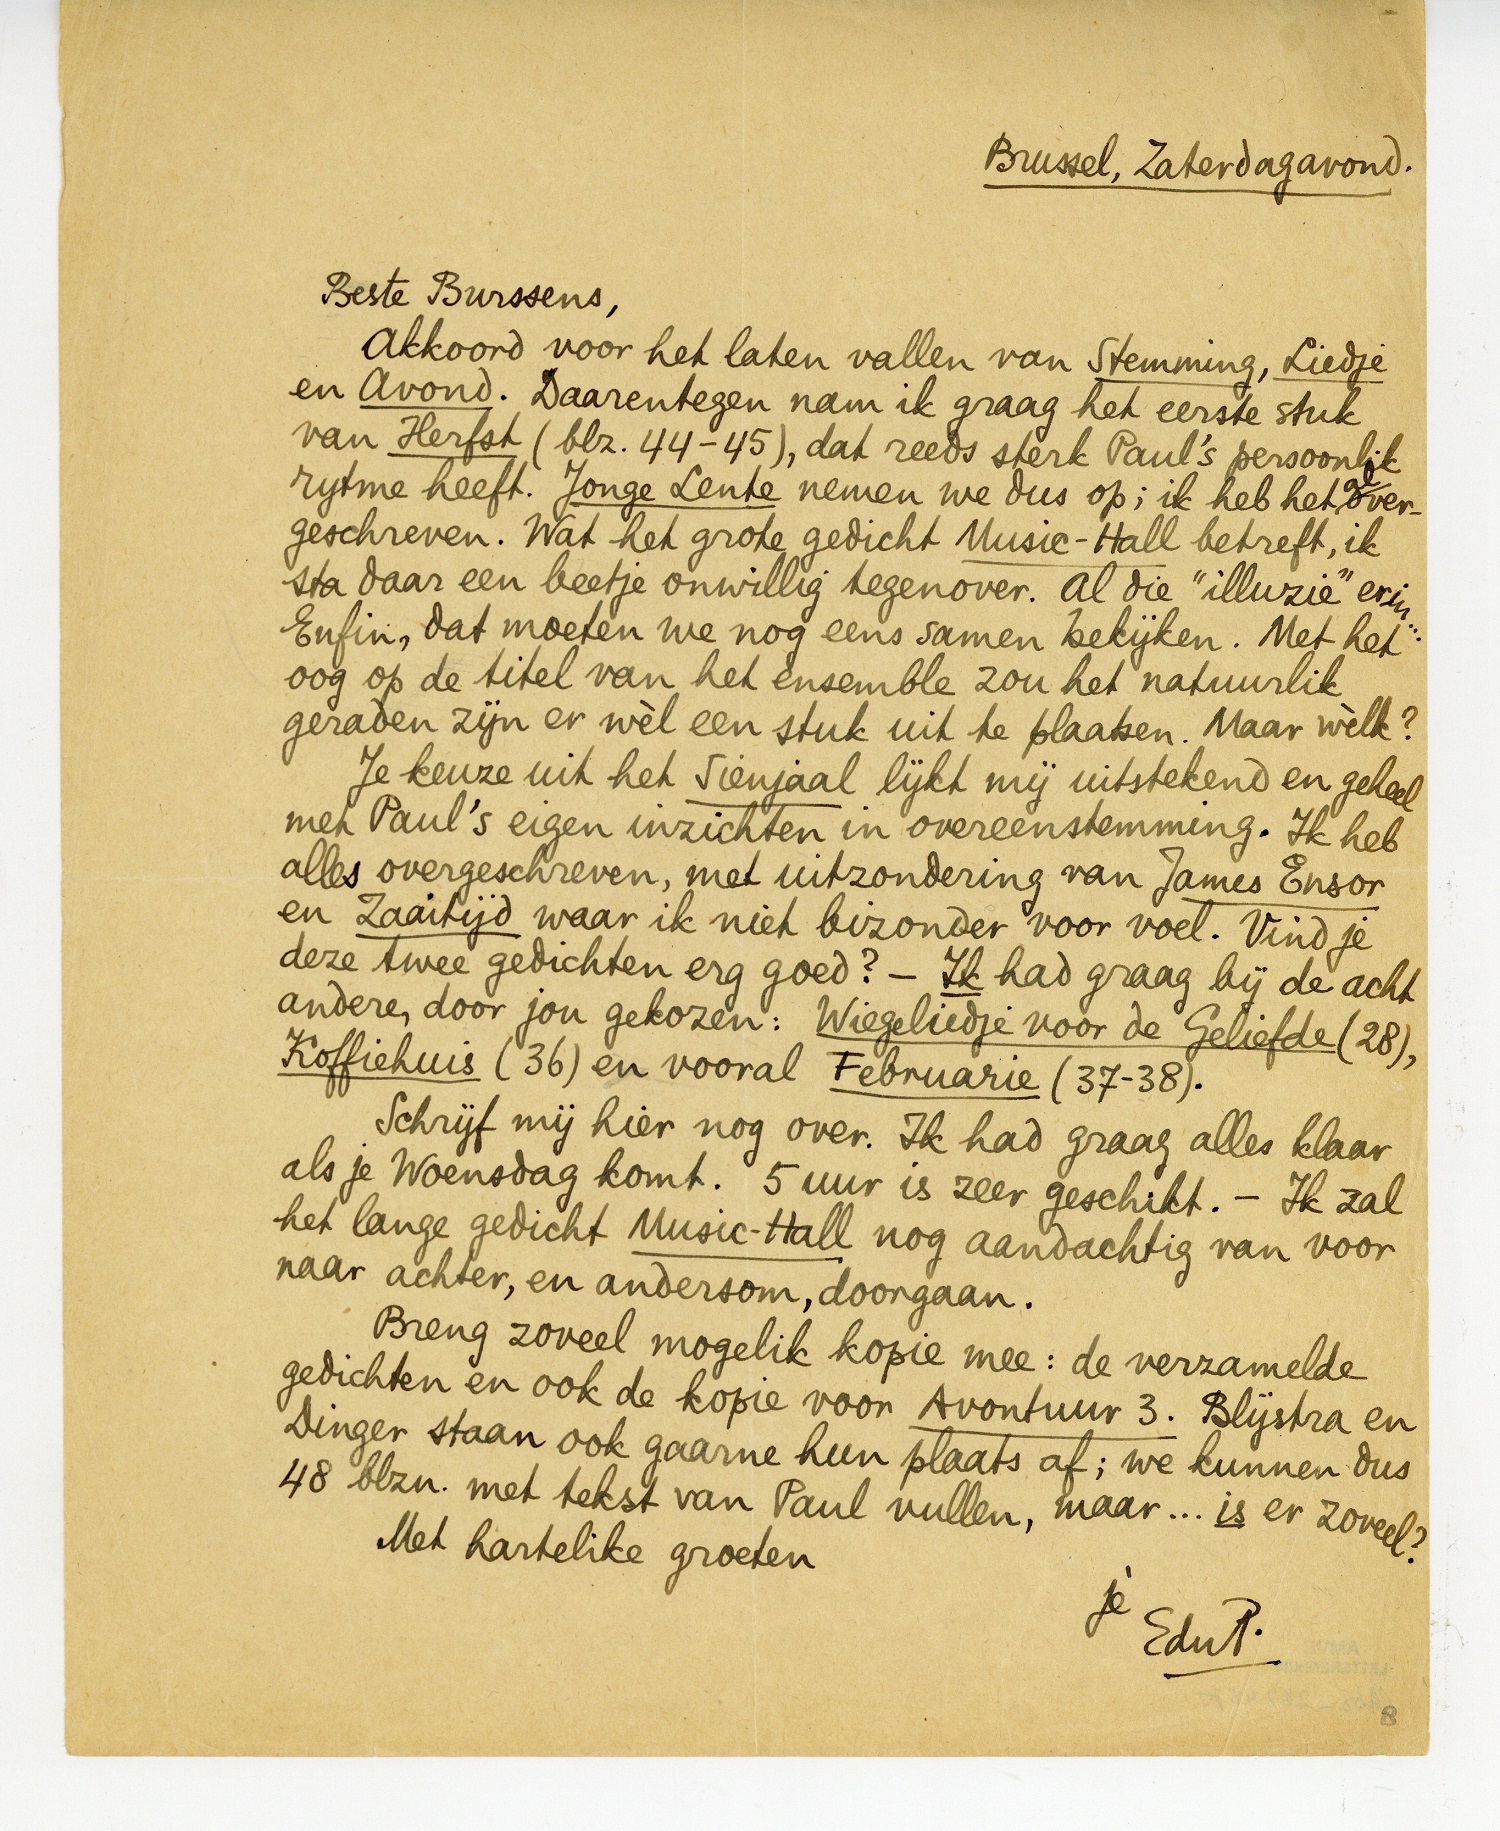 Brussel, Zaterdagavond.
Beste Burssens,
Akkoord voor het laten vallen van Stemming, Liedje
en Avond. Daarentegen nam ik graag het eerste stuk
van Herfst (blz. 44-45), dat reeds sterk Paul's persoonlik
rytme heeft. Jonge Lente nemen we dus op; ik heb het al over-
geschreven. Wat het grote gedicht Music-Hall betreft, ik
sta daar een beetje onwillig tegenover. Al die "illuzie" erin...
Enfin, dat moeten we nog eens samen bekijken. Met het
oog op de titel van het ensemble zou het natuurlik
geraden zijn er wèl een stuk uit te plaatsen. Maar wèlk?
Je keuze uit het Sienjaal lijkt mij uitstekend en geheel
met Paul's eigen inzichten in overeenstemming. Ik heb
alles overgeschreven, met uitzondering van James Ensor
en Zaaitijd waar ik niet bizonder voor voel. Vind je
deze twee gedichten erg goed? – Ik had graag bij de acht
andere, door jou gekozen: Wiegeliedje voor de Geliefde (28),
Koffiehuis (36) en vooral Februarie (37-38).
Schrijf mij hier nog over. Ik had graag alles klaar
als je Woensdag komt. 5 uur is zeer geschikt. – Ik zal
het lange gedicht Music-Hall nog aandachtig van voor
naar achter, en andersom, doorgaan.
Breng zoveel mogelik kopie mee: de verzamelde
gedichten en ook de kopie voor Avontuur 3. Blijstra en
Dinger staan ook gaarne hun plaats af; we kunnen dus
48 blzn. met tekst van Paul vullen, maar... is er zoveel?
Met hartelike groeten
je
EduP.
8